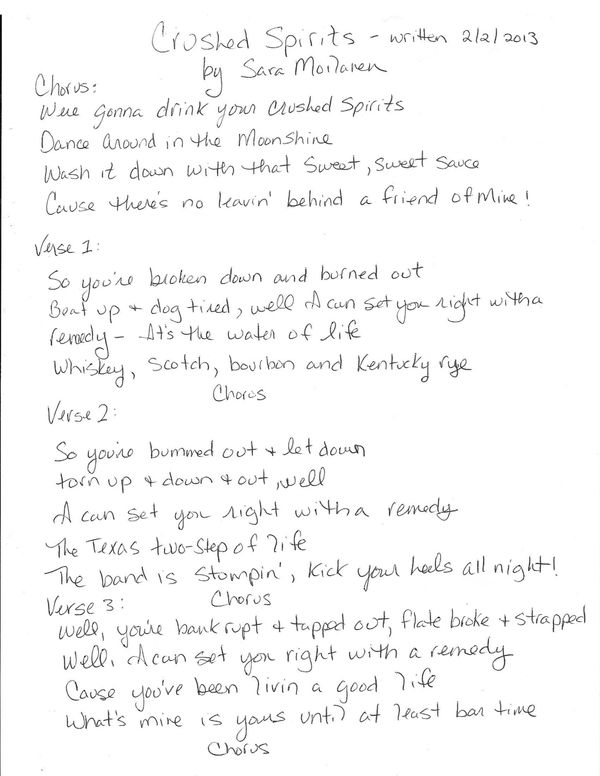 Crushed Spirits - written 2/2/2013
by Sara Moilanen
Chorus:
We're gonna drink your crushed Spirits
Dance around in the Moonshine
Wash it down with that Sweet, Sweet Sauce
Cause there's no leavin' behind a friend of Mine!
Verse 1:
So you're broken down and burned out
Beat up + dog tired, well I can set you right with a
remedy - It's the water of life
Whiskey, Scotch, bourbon and Kentucky rye
Chorus
Verse 2:
So you're bummed out + let down
torn up + down + out, well
I can set you right with a remedy
The Texas two-step of life
The band is Stompin', Kick your heels all night!
Chorus
Verse 3:
Well, you're bankrupt + tapped out, flate broke + strapped
Well, I can set you right with a remedy
Cause you've been livin a good life
What's mine is yours until at least bar time
Chorus